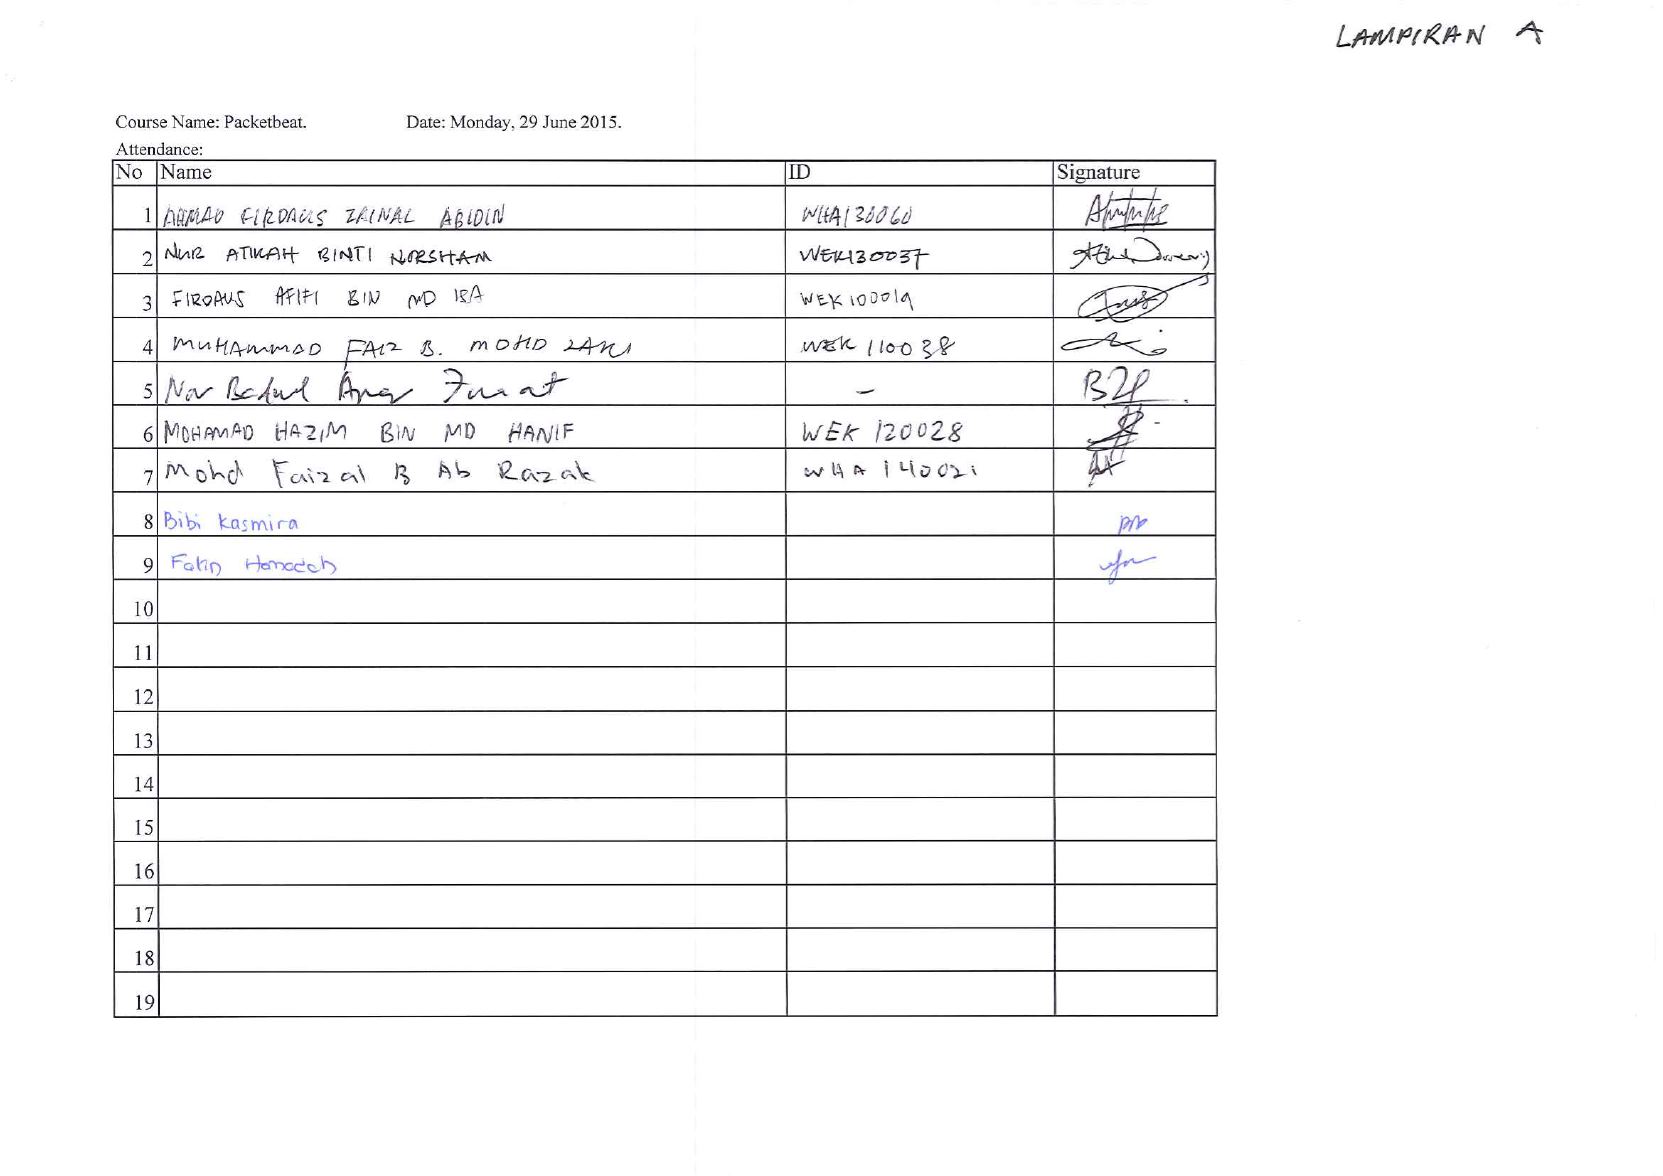 LAMPIRAN A
Course Name: Packetbeat. Date: Monday, 29 June 2015.
Attendance:
No Name ID Signature
1 AHMAD FIRDAUS ZAINAL ABIDIN WHA130060
2 NUR ATIKAH BINTI NORSHAM WEK130037
3 FIRDAUS AFIFI BIN MD ISA WEK100019
4 MUHAMMAD FAIZ B. MOHD ZAKI WEK 110038
5 Nor Badrul Anuar Jumaat -
6 MOHAMAD HAZIM BIN MD HANIF WEK 120028
7 Mohd Faizal B Ab Razak WHA 140021
8 Bibi Kasmira
9 Fatin
10
11
12
13
14
15
16
17
18
19